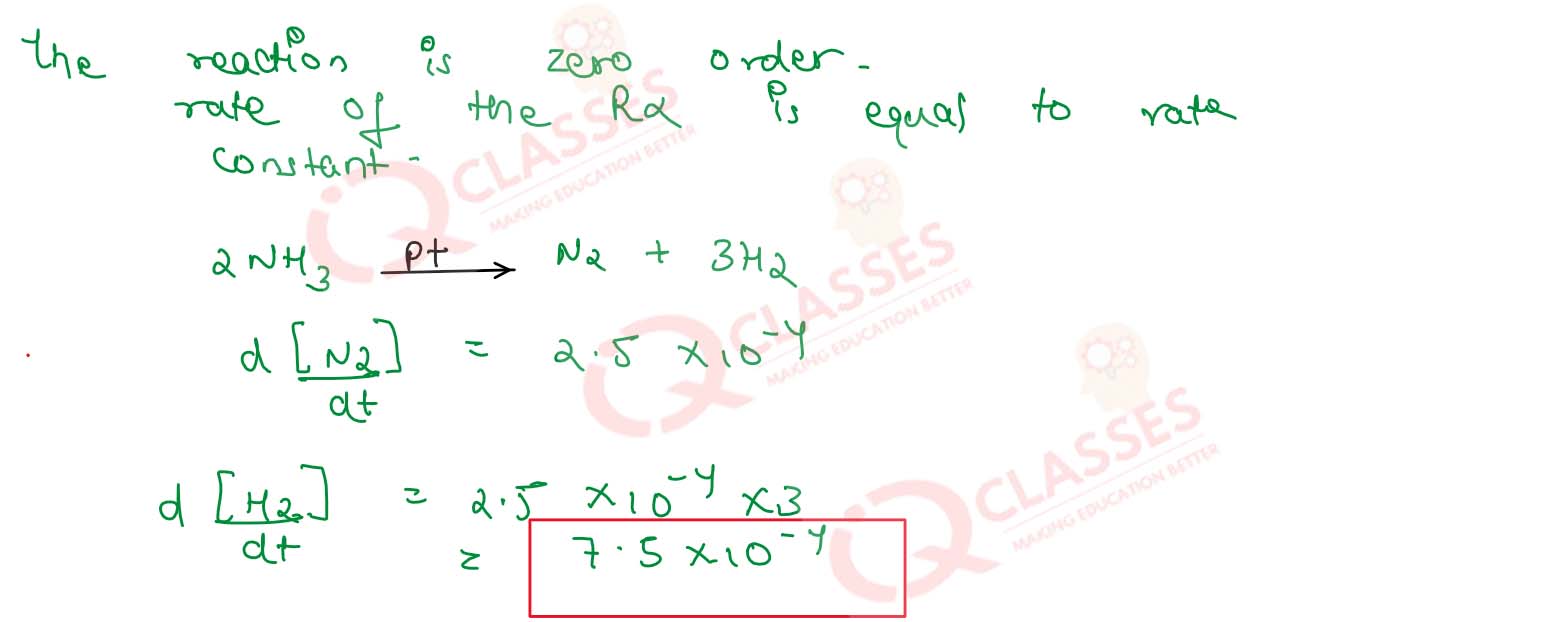 The reaction is zero order.
rate of the Rx is equal to rate
constant.
2NH3 Pt → N2 + 3H2
d[N2]/dt = 2.5 × 10^-4
d[H2]/dt = 2.5 × 10^-4 × 3
= 7.5 × 10^-4
iQ CLASSES
MAKING EDUCATION BETTER
iQ CLASSES
MAKING EDUCATION BETTER
iQ CLASSES
MAKING EDUCATION BETTER